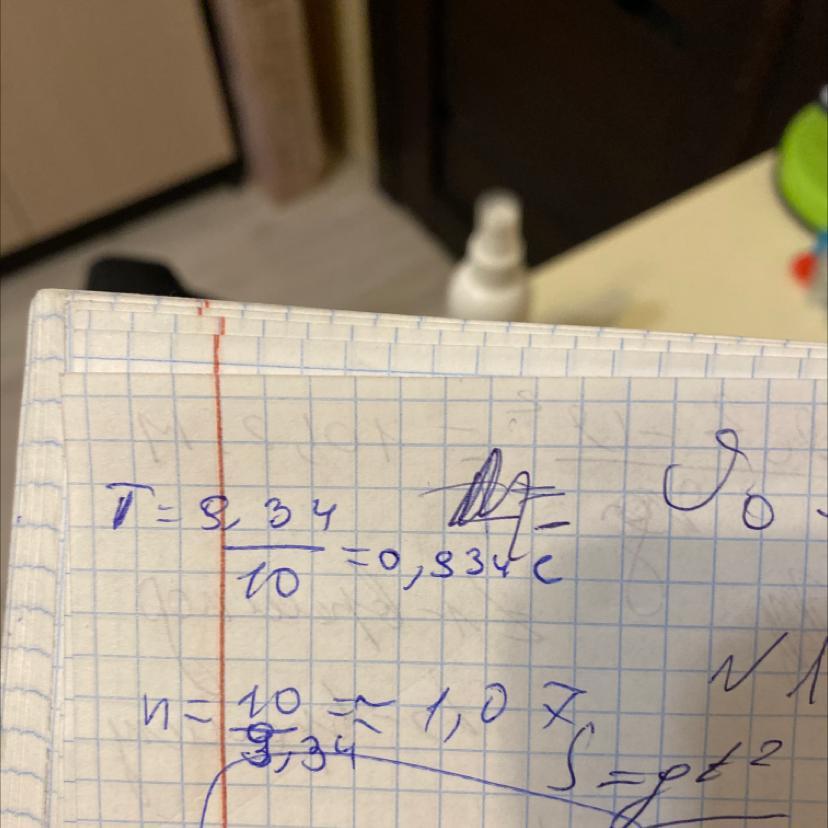 T = 9,34
10
= 0,934 с
υ₀
n = 10
9,34
≈ 1,07
√1
S = gt²